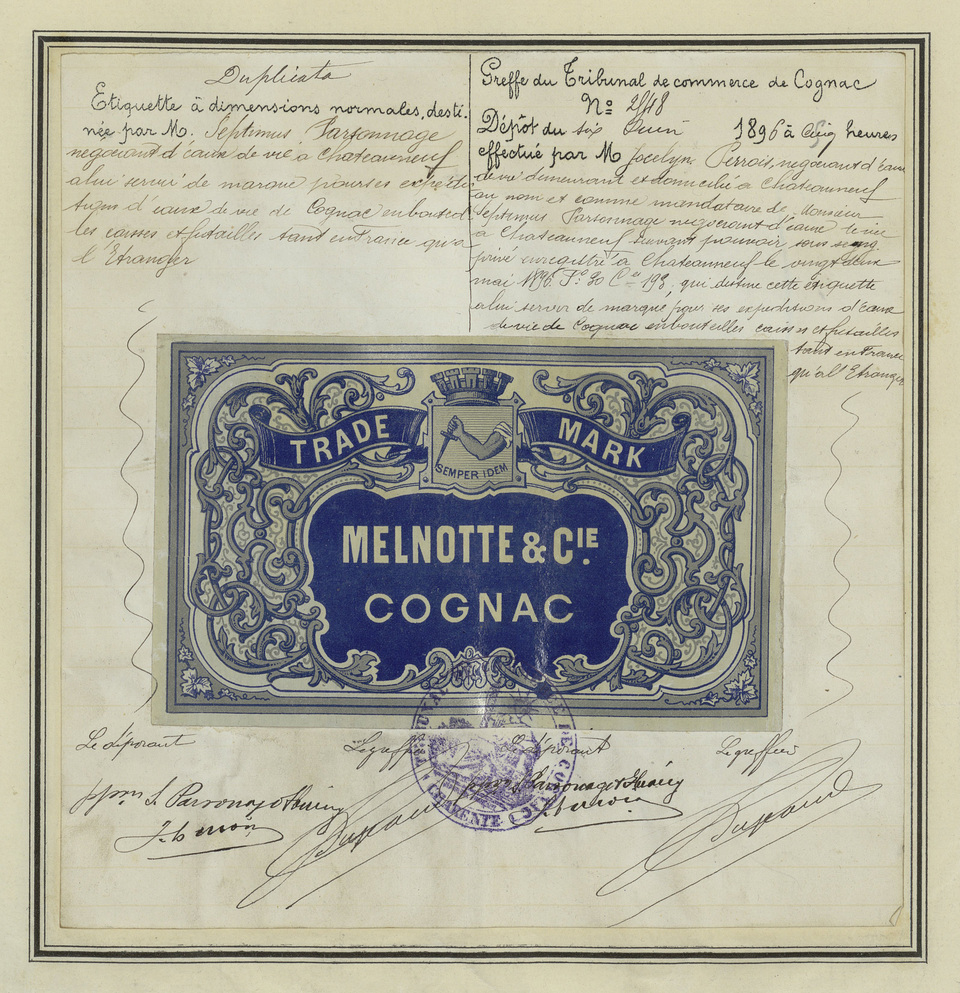 Duplicata
Etiquette à dimensions normales, desti-
née par M. Septimus Parsonnage
negociant d'eaux de vie à Chateauneuf
a lui servir de marque pour ses expédi-
tions d'eaux de vie de Cognac en bouteil
les caisses et futailles tant en France qu'a
l'Etranger
Greffe du Tribunal de commerce de Cognac
No 2948
Dépôt du six Juin 1896 à cinq heures
effectué par M Jocelyn Perrois, negociant d'eaux
de vie demeurant et domicilié à Chateauneuf
au nom et comme mandataire de Monsieur
Septimus Parsonnage negociant d'eaux de vie
à Chateauneuf suivant pouvoir sous seing
privé enregistré à Chateauneuf le vingt deux
mai 1896. Fo 30 Ce 198, qui destine cette étiquette
a lui servir de marque pour ses expeditions d'eaux
de vie de Cognac en bouteilles caisses et futailles
tant en France
qu'a l'Etranger
TRADE MARK
SEMPER IDEM
MELNOTTE & CIE.
COGNAC
Le déposant Le greffier Le déposant Le greffier
CHARENTE